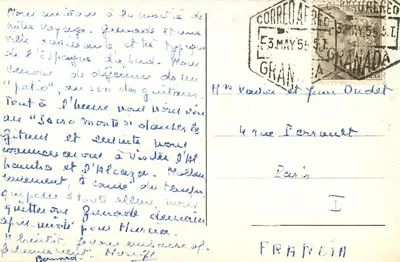 Nous arrivons à la moitié de
notre voyage. Grenade est une
ville ravissante, et très typique
de l'Espagne du Sud. Nous
venons de déjeuner dans un
"patio", au son des guitares.
Tout à l'heure nous
au "Sacro monte" danser les
gitanes et ensuite nous
commencerons à visiter l'Al
hambra et l'Alcazar.
à cause du temps
qui passe à toute allure, nous
quitterons Grenade demain
après-midi pour Murcia.
A bientôt,
Bernard
CORREO AEREO
3 MAY 55 S.T.
GRANADA
CORREO AEREO
3 MAY 55 S.T.
GRANADA
et Jean Oudot
4 rue Perrault
Paris
I
FRANCIA